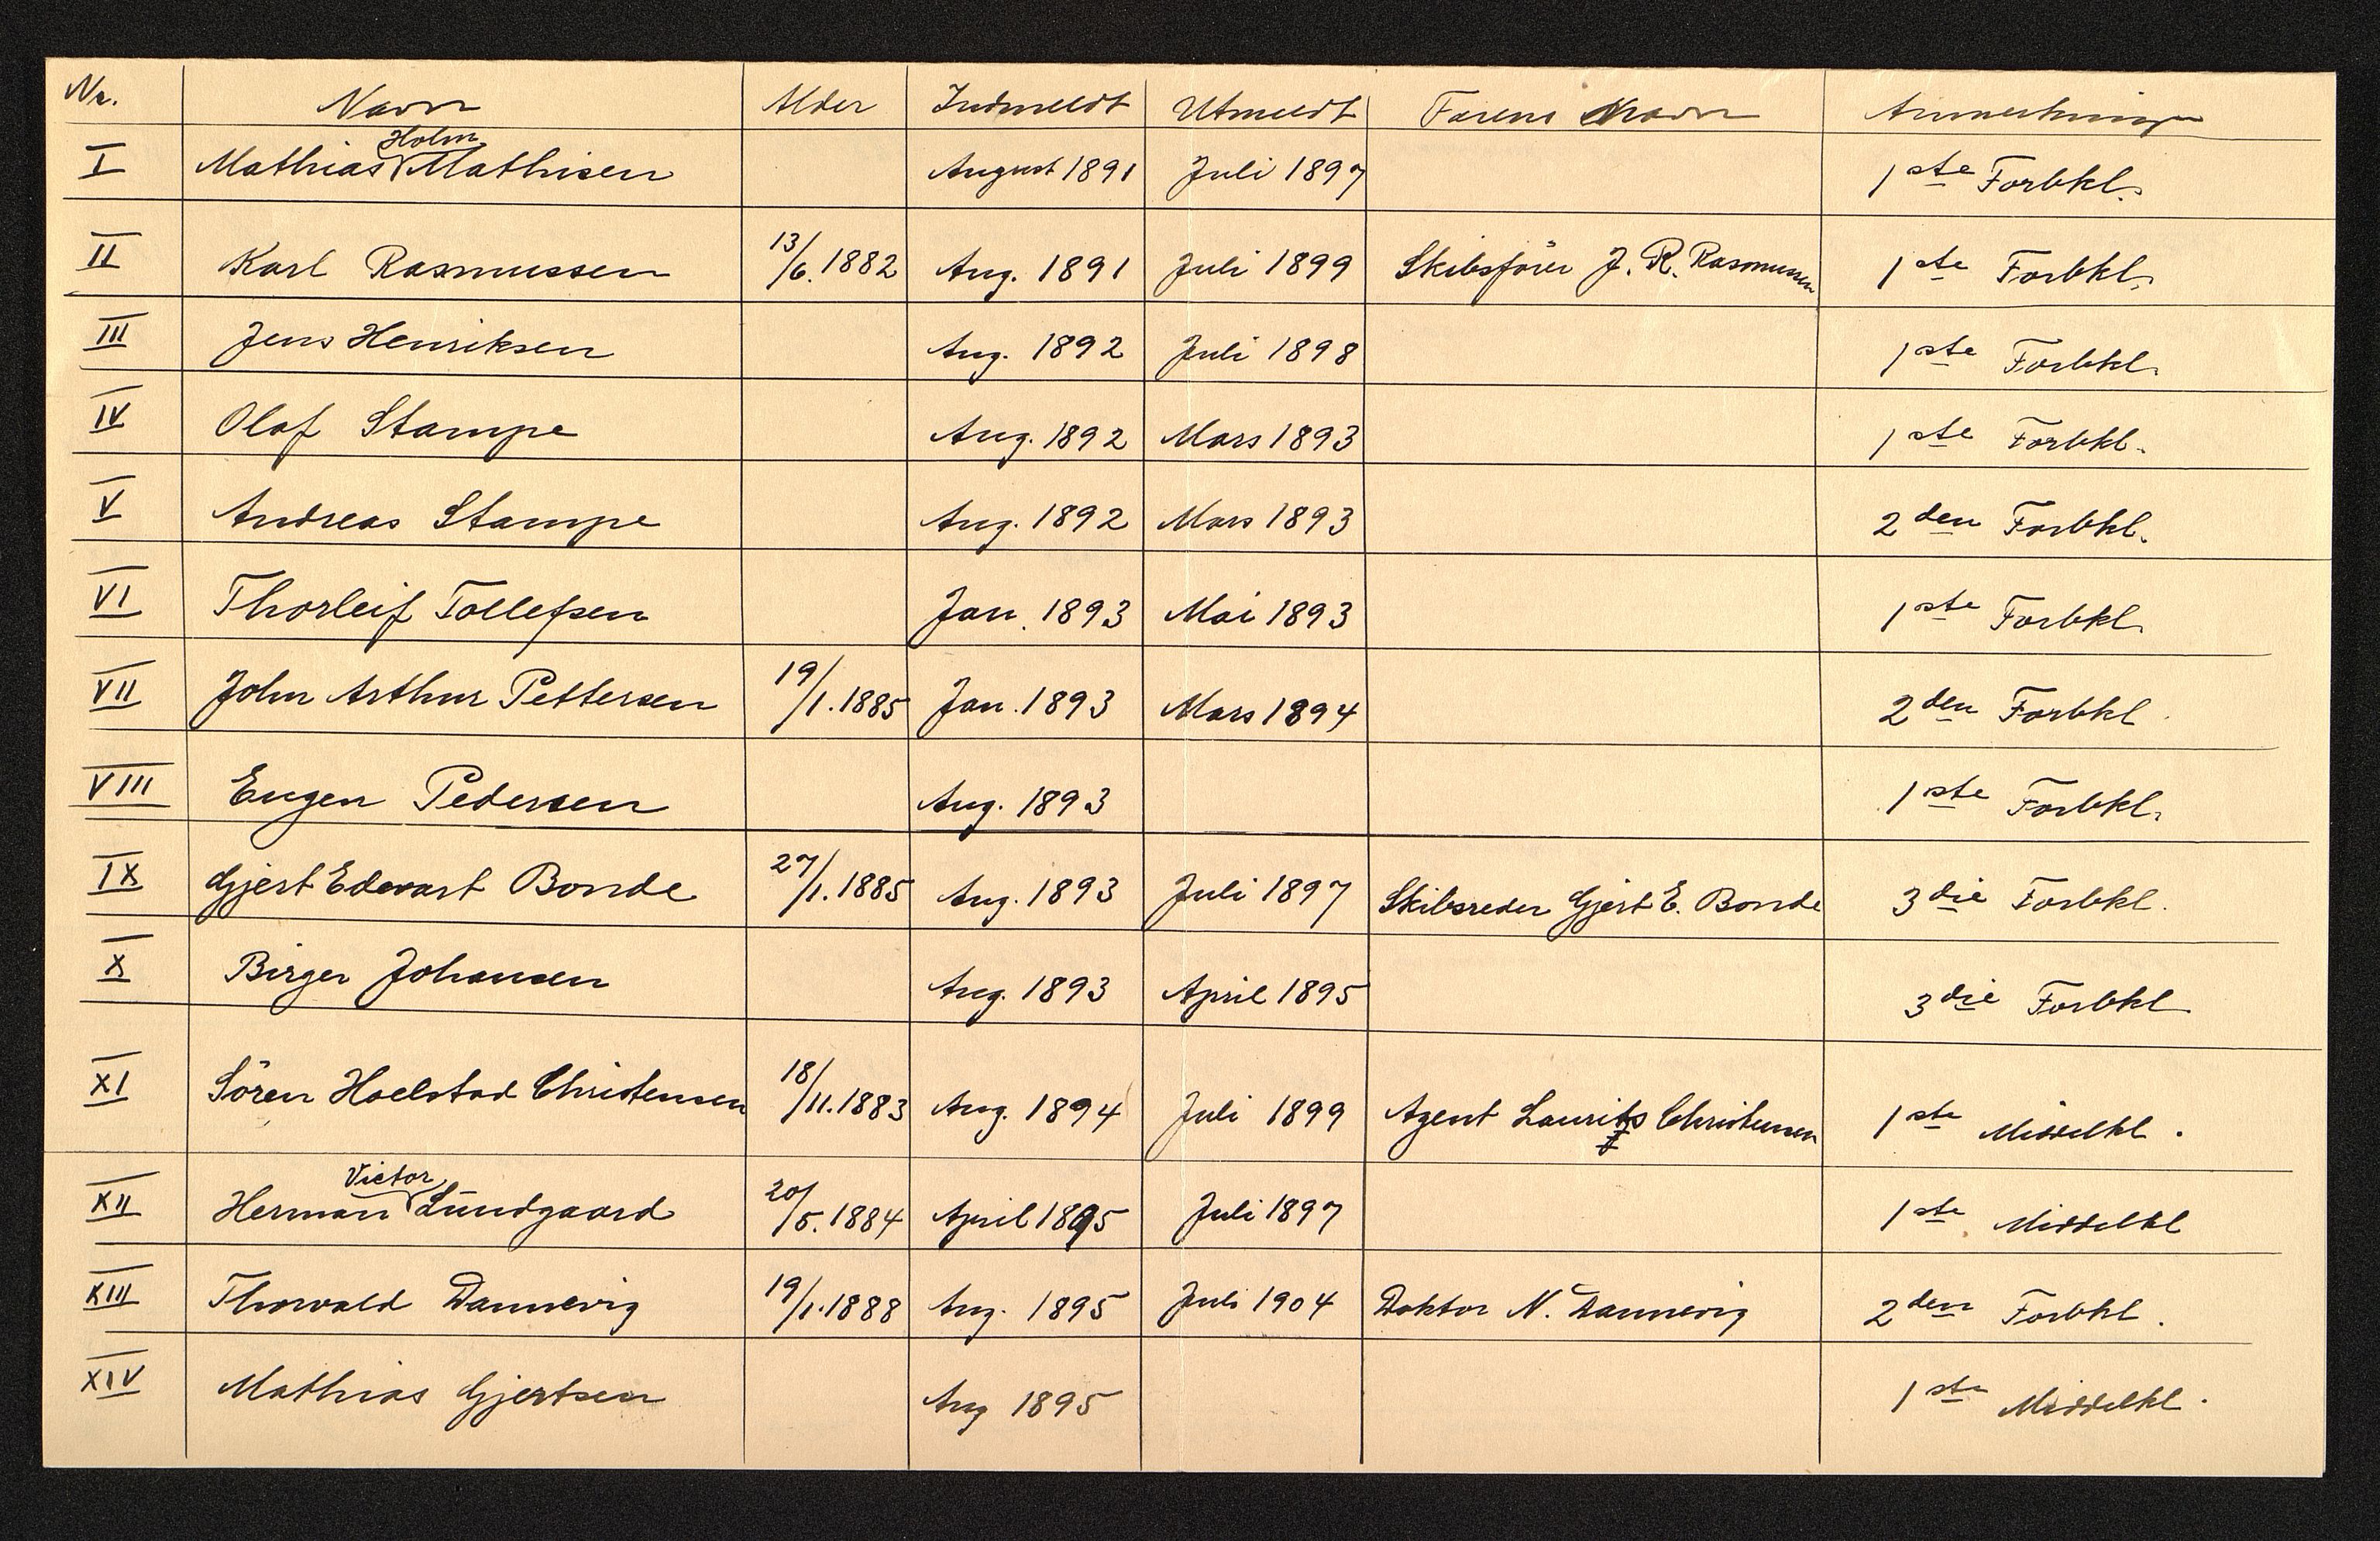 Nr. Navn Alder Indmeldt Utmeldt Farens Navn Anmerkninger
I Mathias Holm Mathisen August 1891 Juli 1897 1ste Forbkl.
II Karl Rasmussen 13/6. 1882 Aug. 1891 Juli 1899 Skibsförer J. R. Rasmussen 1ste Forbkl.
III Jens Henriksen Aug. 1892 Juli 1898 1ste Forbkl.
IV Olaf Stampe Aug. 1892 Mars 1893 1ste Forbkl.
V Andreas Stampe Aug. 1892 Mars 1893 2den Forbkl.
VI Thorleif Tollefsen Jan. 1893 Mai 1893 1ste Forbkl.
VII John Arthur Pettersen 19/1. 1885 Jan. 1893 Mars 1894 2den Forbkl.
VIII Eugen Pedersen Aug. 1893 1ste Forbkl.
IX Gjert Edevart Bonde 27/1. 1885 Aug. 1893 Juli 1897 Skibsreder Gjert E. Bonde 3die Forbkl.
X Birger Johansen Aug. 1893 April 1895 3die Forbkl
XI Sören Hoelstad Christensen 18/11. 1883 Aug. 1894 Juli 1899 Agent Laurits Christensen 1ste Middelkl.
XII Herman Victor Lundgaard 20/5. 1884 April 1895 Juli 1897 1ste Middelkl
XIII Thorvald Dannevig 19/1. 1888 Aug. 1895 Juli 1904 Doktor N. Dannevig 2den Forbkl.
XIV Mathias Gjertsen Aug 1895 1ste Middelkl.